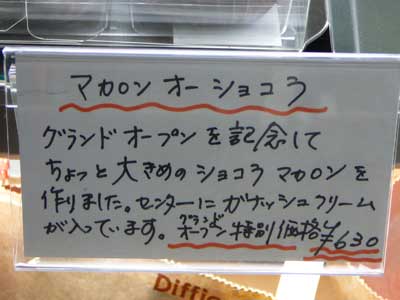 マカロン オーショコラ
グランドオープンを記念して
ちょっと大きめのショコラマカロンを
作りました。センターにガナッシュクリーム
が入っています。グランドオープン特別価格で
¥630
Diffic